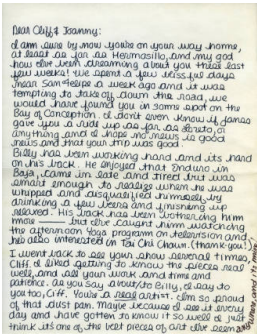 Dear Cliff & Joanny:
I am sure by now you're on your way home,
at least as far as Hermosillo, and my god
how I've been dreaming about you this last
few weeks! We spent a few blissful days
near San Felipe a week ago and it was
tempting to take off down the road, we
would have found you in some spot on the
Bay of Conception. I don't even know if James
gave you a ride up as far as Loreto, or
anything and I hope no news is good
news and that your trip was good.
Billy has been working hard and it's hard
on his back. He enjoyed that Enduro in
Baja, came in late and tired but was
smart enough to realize when he was
whipped and disqualified himself by
drinking a few beers and finishing up
relaxed. His back has been bothering him
more — but I've caught him watching
the afternoon Yoga program on television and
he's also interested in Tai Chi Chuan. (thank you!)
I went back to see your show several times,
Cliff. I liked getting to know the pieces real
well, and all your work and time and
patience. As you say about/to Billy, I say to
you too, Cliff. You're a real artist. I'm so proud
of that dust pan. Maybe because I see it every
day and have gotten to know it so well I just
think it's one of the best pieces of art I've seen